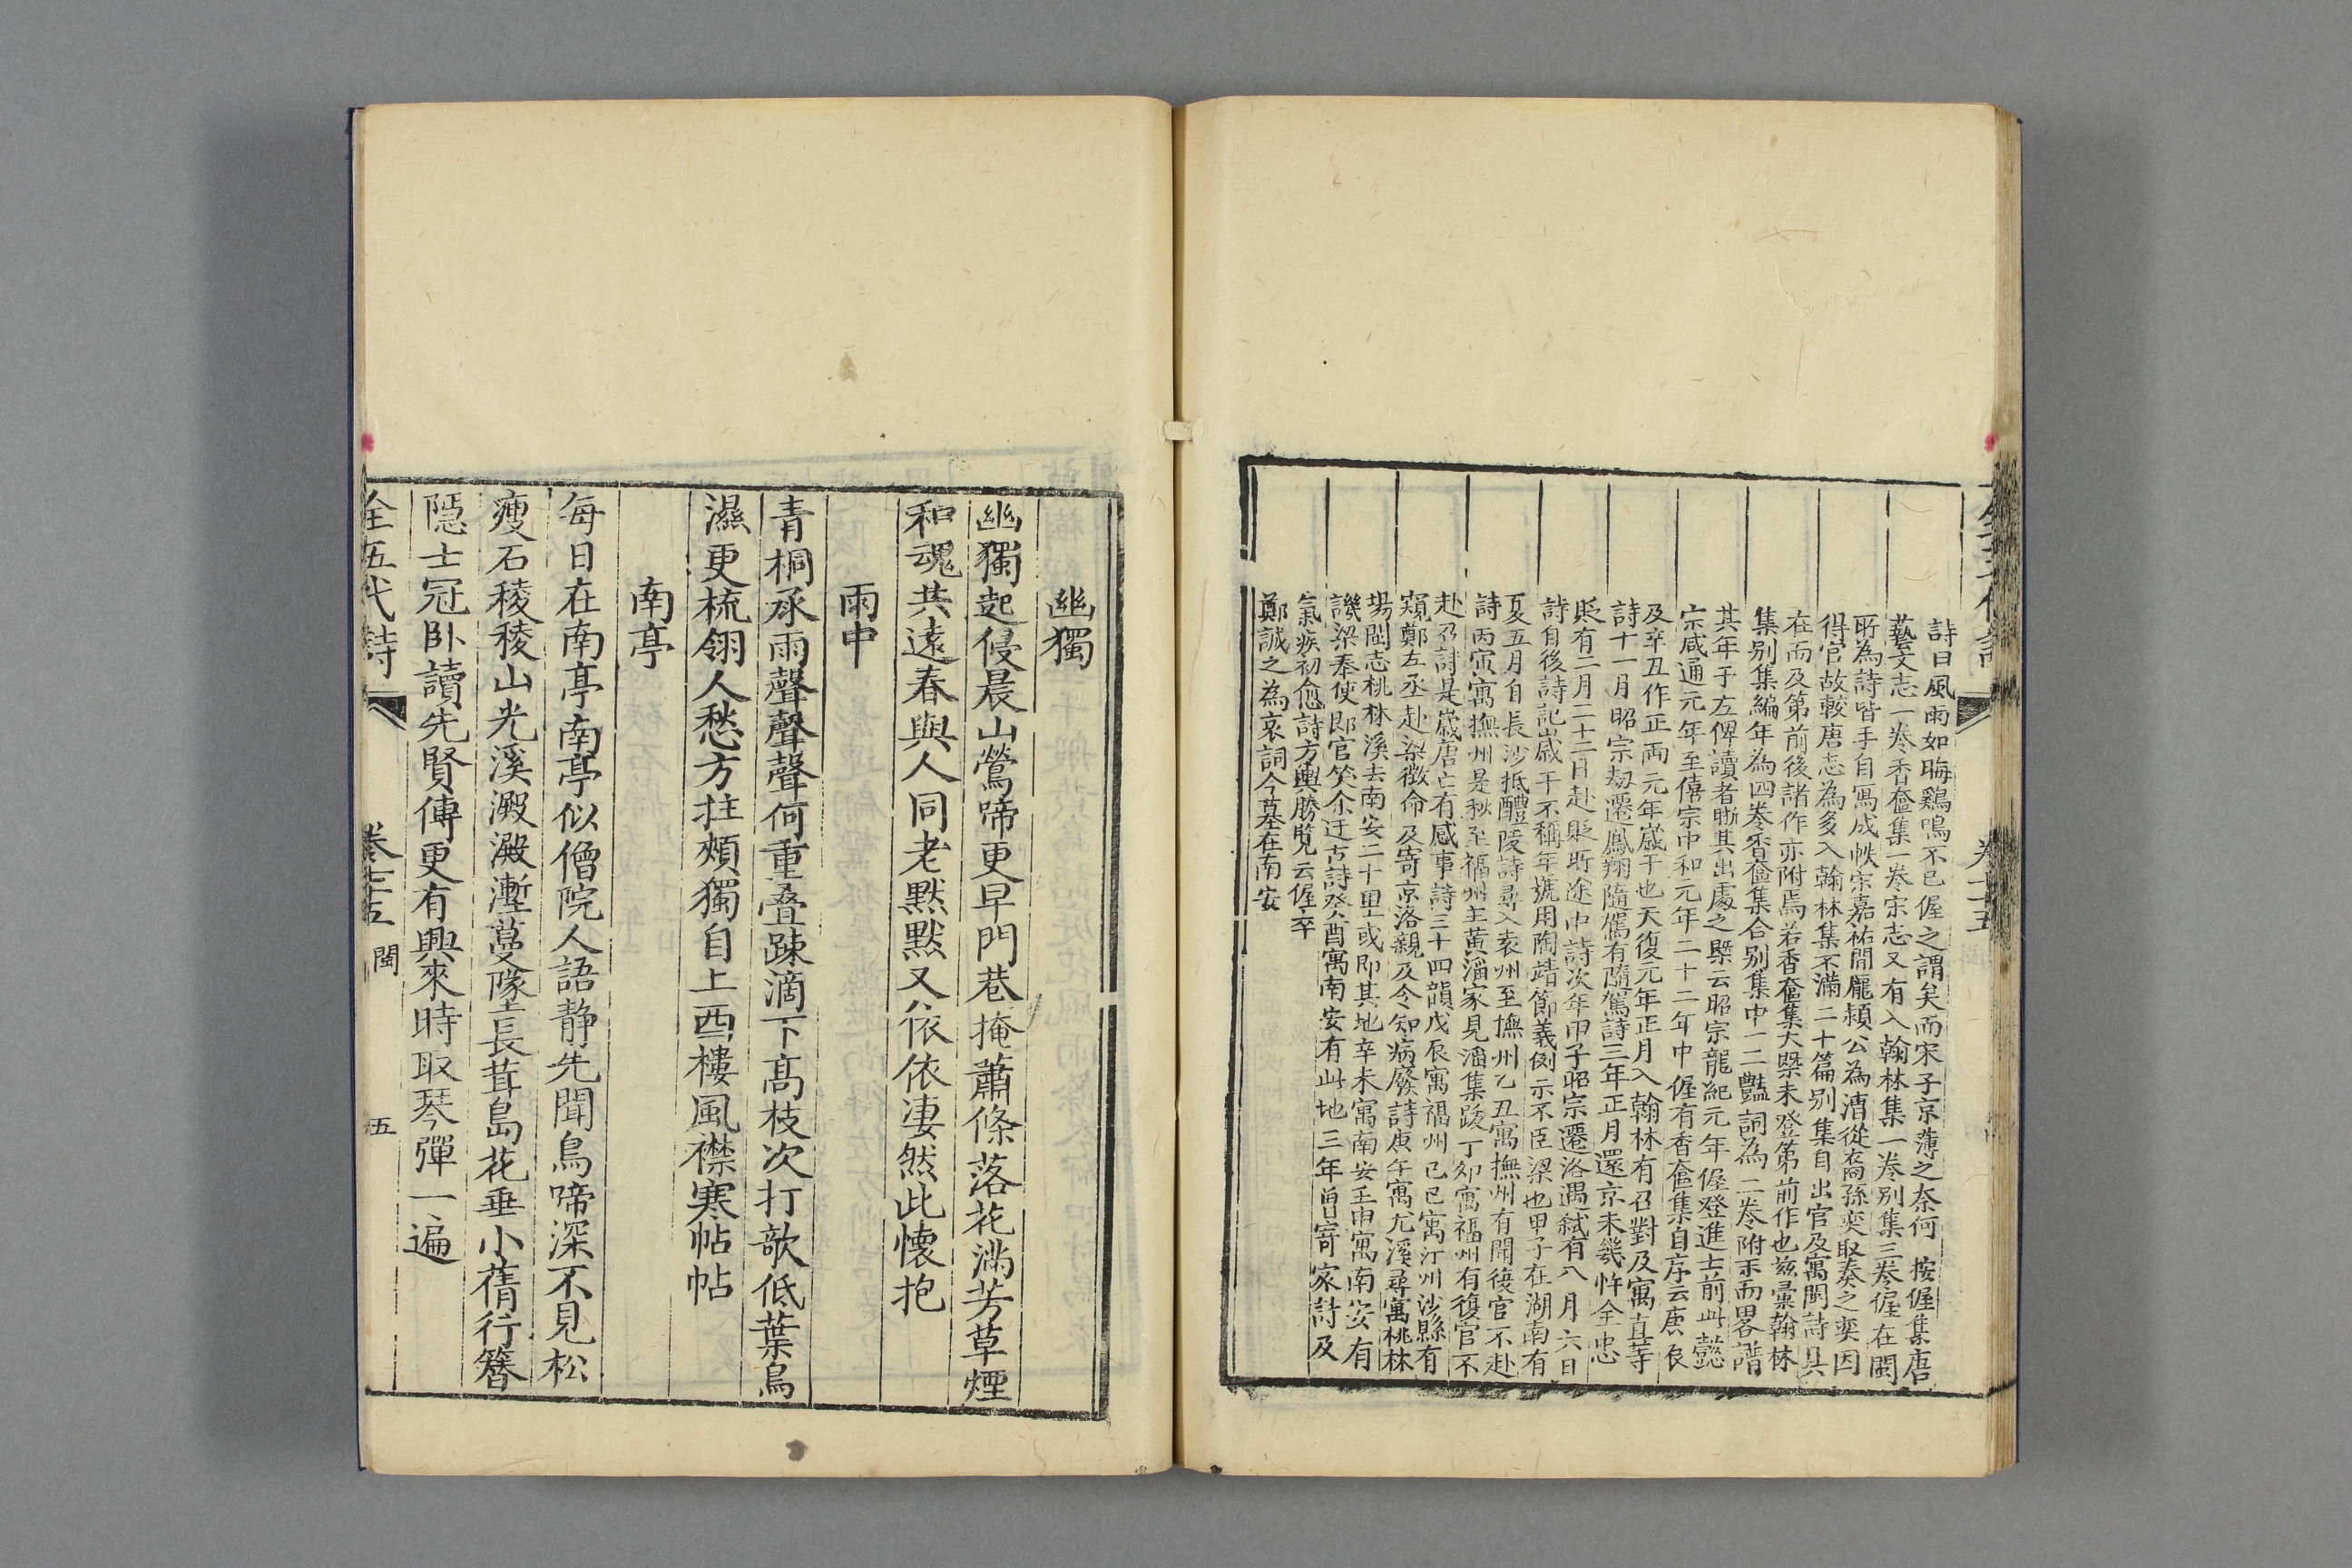 詩曰風雨如晦鷄鳴不已偓之謂矣而宋子京薄之奈何　按偓集唐
藝文志一卷香奩集一卷宋志又有入翰林集一卷别集三卷偓在閩
所為詩皆手自冩成帙宋嘉祐間龎頴公為漕從裔孫奕取奏之奕因
得官故較唐志為多入翰林集不滿二十篇别集自出官及寓閩詩具
在而及第前後諸作亦附焉若香奩集大槩未登第前作也兹彚翰林
集别集編年為四卷香奩集合别集中一二豔詞為二卷附末而畧譜
其年于左俾讀者晰其出處之槩云昭宗龍紀元年偓登進士前此懿
宗咸通元年至僖宗中和元年二十二年中偓有香奩集自序云庚辰
及辛丑作正両元年嵗干也天復元年正月入翰林有召對及寓直等
詩十一月昭宗刼遷鳳翔隨駕有隨駕詩三年正月還京未幾忤全忠
貶有二月二十二日赴貶所途中詩次年甲子昭宗遷洛遇弑有八月六日
詩自後詩記嵗干不稱年號用陶靖節義例示不臣梁也甲子在湖南有
夏五月自長沙抵醴陵詩尋入袁州至撫州乙丑寓撫州有聞復官不赴
詩丙寅寓撫州是秋至福州主黄滔家見滔集䟦丁夘寓福州有復官不
赴召詩是嵗唐亡有感事詩三十四韻戊辰寓福州己巳寓汀州沙縣有
窺鄭左丞赴梁徴命及寄京洛親及令知病廢詩庚午寓尤溪尋寓桃林
塲閩志桃林溪去南安二十里或即其地辛未寓南安壬申寓南安有
譏梁奉使郎官笑余迂古詩癸酉寓南安有此地三年曽寄家詩及
氣疾初愈詩方輿勝覧云偓卒
鄭誠之為哀詞今墓在南安
卷七十五
幽獨
幽獨起侵晨山鶯啼更早門巷掩蕭條落花滿芳草煙
和魂共遠春與人同老黙黙又依依凄然此懐抱
雨中
青桐承雨聲聲聲何重疊踈滴下高枝次打欹低葉鳥
濕更梳翎人愁方拄頰獨自上西樓風襟寒帖帖
南亭
每日在南亭南亭似僧院人語静先聞鳥啼深不見松
瘦石稜稜山光溪澱澱塹蔓隊長茸島花垂小蒨行簪
隠士冠卧讀先賢傳更有興來時取琴彈一遍
全五代詩　卷七十五　閩　五